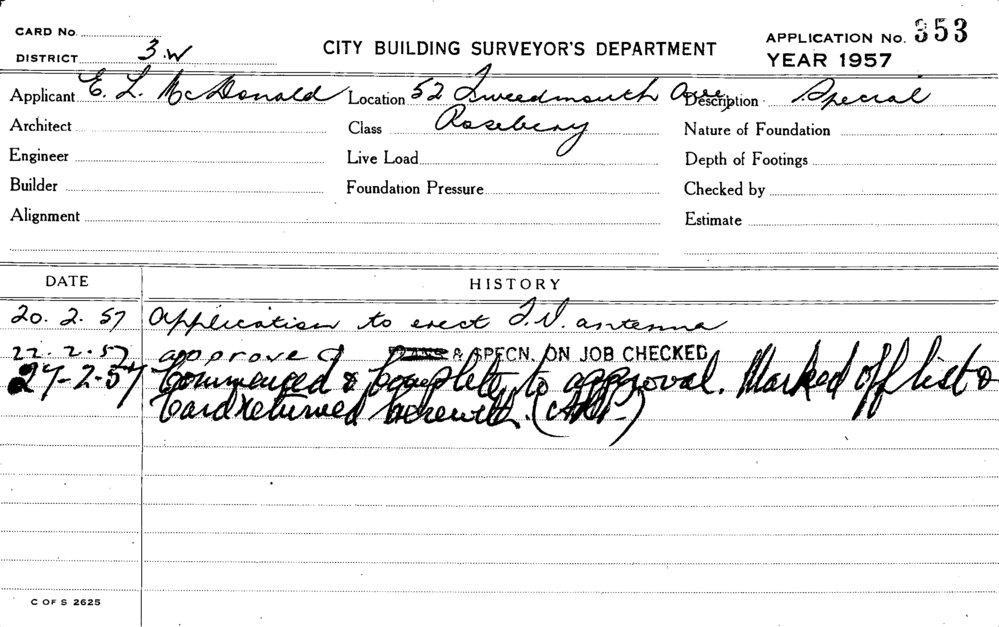 CARD No.
DISTRICT 3.W
CITY BUILDING SURVEYOR'S DEPARTMENT
APPLICATION No. 353
YEAR 1957
Applicant E. L. McDonald Location 52 Tweedmouth Ave, Description Special
Architect Class Rosebery Nature of Foundation
Engineer Live Load Depth of Footings
Builder Foundation Pressure Checked by
Alignment Estimate
DATE HISTORY
20. 2. 57 Application to erect T.V. antenna
22. 2. 57 approved PLANS & SPECN. ON JOB CHECKED
27-2-57 Commenced & Complete to approval. Marked off list &
Card returned herewith.
C OF S 2625